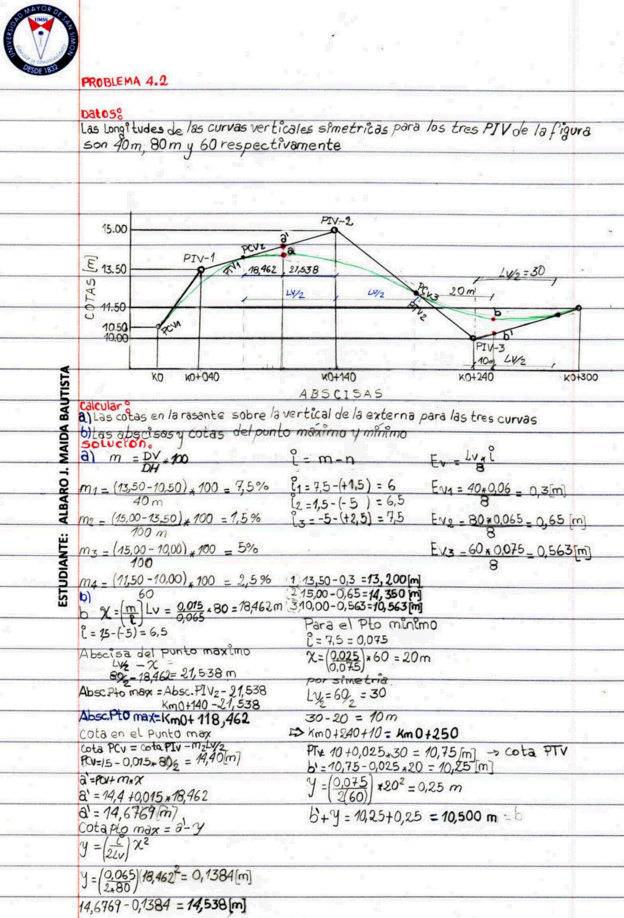 UNIVERSIDAD MAYOR DE SAN SIMON
UMSS
DESDE 1832
PROBLEMA 4.2
Datos:
Las Longitudes de las curvas verticales simetricas para los tres PIV de la figura
son 40m, 80m y 60 respectivamente
COTAS [m]
15.00
13.50
11.50
10.50
10.00
PCV1
PIV-1
PTV1
PCV2
a'
a
18,462
21,538
PIV-2
Lv/2
Lv/2
PCV3
PTV2
20m
Lv/2=30
b
b'
PIV-3
10m
Lv/2
K0
K0+040
K0+140
K0+240
K0+300
ABSCISAS
Calcular:
a) Las cotas en la rasante sobre la vertical de la externa para las tres curvas
b) Las abscisas y cotas del punto máximo y mínimo
solución:
a) m = DV/DH *100
i = m-n
Ev = Lv*i/8
m1 = (13,50-10,50)/40m *100 = 7,5%
i1 = 7,5-(+1,5) = 6
Ev1 = 40*0,06/8 = 0,3[m]
m2 = (15,00-13,50)/100 m *100 = 1,5%
i2 = 1,5-(-5) = 6,5
Ev2 = 80*0,065/8 = 0,65 [m]
i3 = -5-(+2,5) = 7,5
m3 = (15,00-10,00)/100 *100 = 5%
Ev3 = 60*0,075/8 = 0,563[m]
m4 = (11,50-10,00)/60 *100 = 2,5%
1 13,50-0,3 = 13,200[m]
2 15,00-0,65 = 14,350[m]
3 10,00-0,563 = 10,563[m]
b)
b X = (m/i) Lv = 0,015/0,065 *80 = 18,462m
i = 1,5-(-5) = 6,5
Abscisa del punto maximo
Lv/2 - X =
80/2 - 18,462 = 21,538 m
Absc.Pto max = Absc.PIV2 - 21,538
Km0+140 - 21,538
Absc.Pto max = Km0+ 118,462
Cota en el Punto max
Cota PCv = cota PIv - m*Lv/2
PCv = 15 - 0,015*80/2 = 14,40[m]
a' = PCv + m*X
a' = 14,4 + 0,015*18,462
a' = 14,6769 [m]
Cota pto max = a' - y
y = (i/2Lv) X²
y = (0,065/2*80) 18,462² = 0,1384[m]
14,6769 - 0,1384 = 14,538[m]
Para el Pto mínimo
i = 7,5 = 0,075
X = (0,025/0,075) *60 = 20m
por simetria
Lv/2 = 60/2 = 30
30-20 = 10m
⇒ Km0+240+10 = Km0+250
PTv 10+0,025*30 = 10,75[m] → cota PTV
b' = 10,75-0,025*20 = 10,25[m]
y = (0,075/2(60)) *20² = 0,25 m
b'+y = 10,25+0,25 = 10,500 m = b
ESTUDIANTE: ALBARO J. MAIDA BAUTISTA